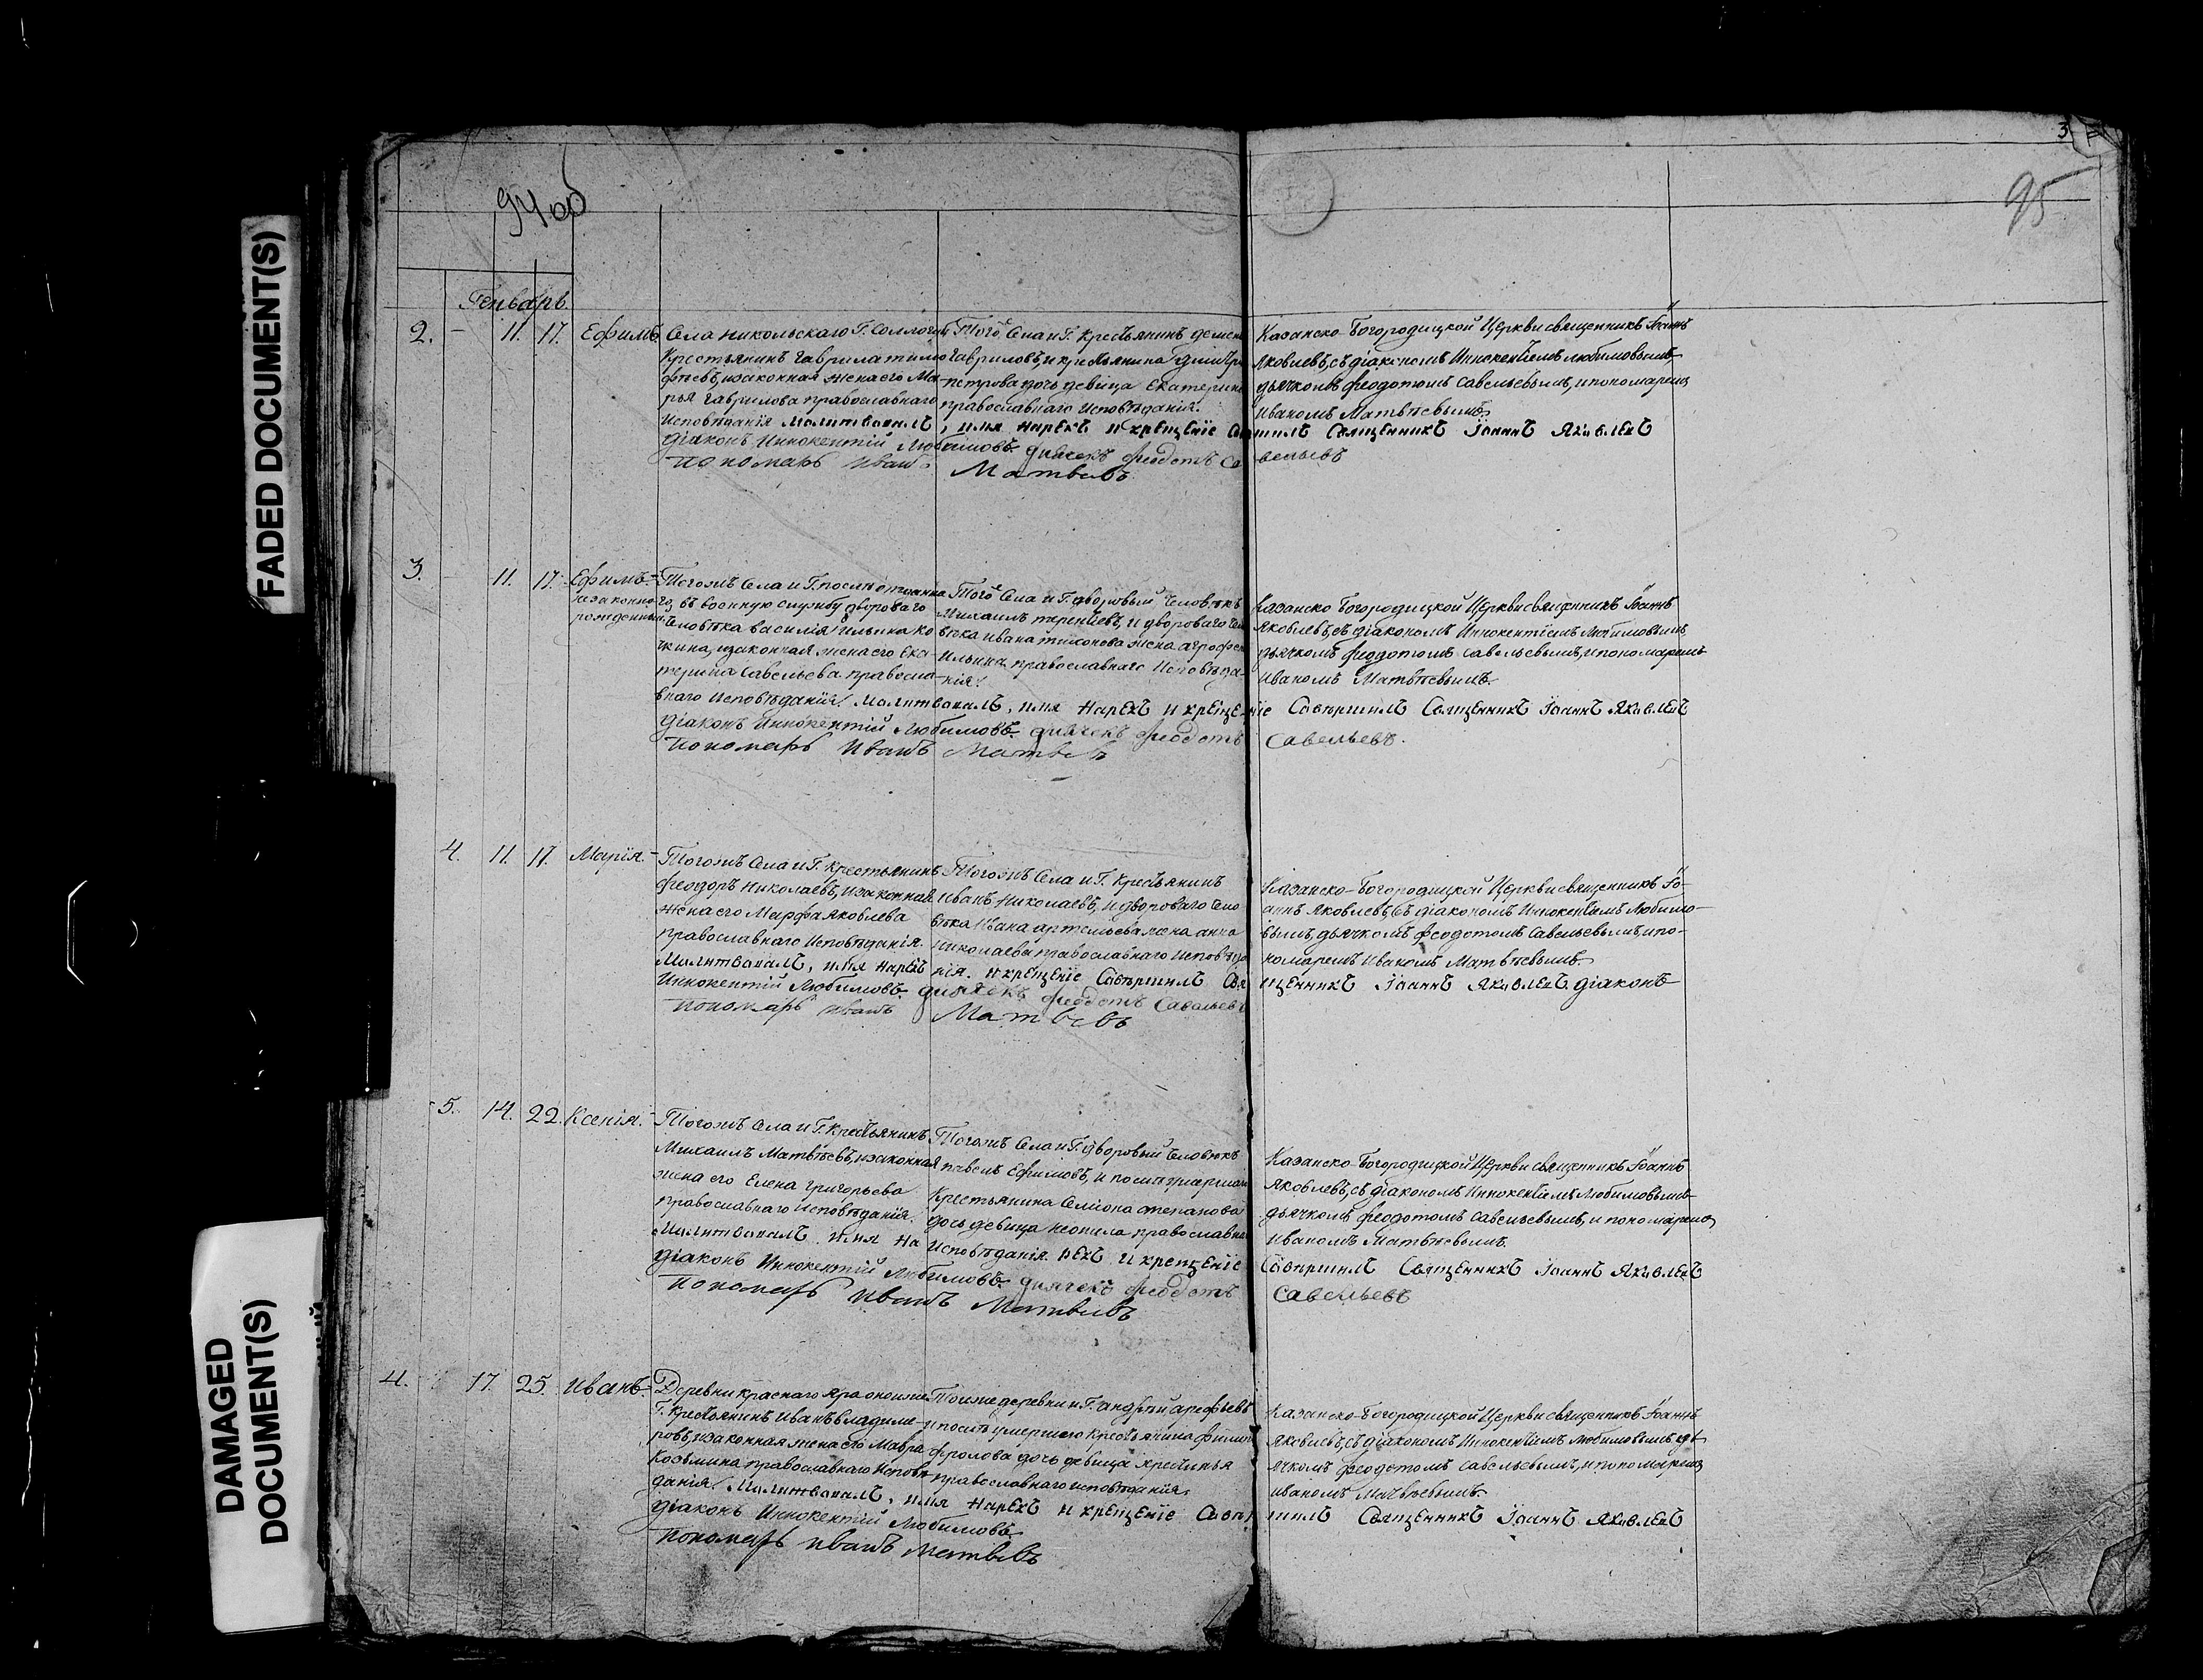 3
94 об
95
FADED DOCUMENT(S)
DAMAGED
DOCUMENT(S)
Генварь.
2. 11. 17. Ефимъ.
Села Никольскаго Г. Соллогу
Крестьянинъ Гаврила тимо
феевъ, изаконная жена его Ма-
рья Гаврилова православнаго
Исповѣданія
Того Села и Г. Крестьянинъ
Гавриловъ, и крестьянина
петрова дочь девица Екатерин
православнаго Исповѣданія.
Казанско-Богородицкой Церкви священникъ Іоаннъ
Яковлевъ, съ діакономъ Иннокентіемъ Любимовымъ,
дьячкомъ Феодотомъ Савельевымъ, и пономаремъ
Иваномъ Матвѣевымъ.
Молитвовалъ, имя нарекъ и крещеніе шилъ Священникъ Іоаннъ Яковлевъ
діаконъ Иннокентій Любимовъ. дьячекъ Феодотъ Савельевъ
пономарь Иванъ Матвевъ
3. 11. 17. Ефимъ.
незаконно-
рожденный.
Тогожъ Села и Г. послѣ
въ военную службу двороваго
Человѣка Василія Ильина
изаконная жена его Ека-
терина Савельева правосла-
внаго Исповѣданія.
Того Села и Г. дворовый Человѣкъ
Михаилъ терентіевъ, и двороваго Чело
вѣка Ивана тихонова жена
Ильина, православнаго Исповѣда-
нія.
Казанско Богородицкой Церкви священникъ Іоаннъ
Яковлевъ, съ діакономъ Иннокентіемъ Любимовымъ,
дьячкомъ Феодотомъ Савельевымъ, и пономаремъ
Иваномъ Матвѣевымъ.
Молитвовалъ, имя Нарекъ и крещеніе Совершилъ Священникъ Іоаннъ Яковлевъ
діаконъ Иннокентій Любимовъ. дьячекъ Феодотъ Савельевъ.
пономарь Иванъ Матвевъ
4. 11. 17. Марія.
Тогожъ Села и Г. Крестьянинъ
Феодоръ Николаевъ, изаконная
жена его Марфа Яковлева
православнаго Исповѣданія.
Тогожъ Села и Г. Крестьянинъ
Иванъ Николаевъ, и двороваго Чело
вѣка Ивана артемьева жена анна
Николаева православнаго Исповѣда
нія.
Казанско-Богородицкой Церкви священникъ Іо-
аннъ Яковлевъ, съ діакономъ Иннокентіемъ Любимо-
вымъ, дьячкомъ Феодотомъ Савельевымъ, и по-
номаремъ Иваномъ Матвѣевымъ.
Молитвовалъ, имя нарекъ и крещеніе Совершилъ Священникъ Іоаннъ Яковлевъ діаконъ
Иннокентій Любимовъ. дьячекъ Феодотъ Савельевъ
пономарь Иванъ Матвевъ
5. 14. 22. Ксенія.
Тогожъ Села и Г. Крестьянинъ
Михаилъ Матвѣевъ, изаконная
жена его Елена Григорьева
православнаго Исповѣданія.
Тогожъ Села и Г. дворовый Человѣкъ
павелъ Ефимовъ, и
Крестьянина Семіона степанова
дочь девица православна
Исповѣданія.
Казанско-Богородицкой Церкви священникъ Іоаннъ
Яковлевъ, съ діакономъ Иннокентіемъ Любимовымъ
дьячкомъ Феодотомъ Савельевымъ, и пономаремъ
Иваномъ Матвѣевымъ.
Молитвовалъ имя Нарекъ и крещеніе Совершилъ Священникъ Іоаннъ Яковлевъ
діаконъ Иннокентій Любимовъ. дьячекъ Феодотъ Савельевъ
пономарь Иванъ Матвевъ
4. 17. 25. Иванъ.
Деревни Краснаго Яра
Г. Крестьянинъ Иванъ владими-
ровъ, изаконная жена его Мавра
Козьмина православнаго Исповѣ-
данія.
Тоижедеревни и Г. андрей арефьевъ
и послѣ умершаго Крестьянина
Фролова дочь девица Христинья
православнаго исповѣданія.
Казанско-Богородицкой Церкви священникъ Іоаннъ
Яковлевъ, съ діакономъ Иннокентіемъ Любимовымъ, дь-
ячкомъ Феодотомъ Савельевымъ, и пономаремъ
Иваномъ Матвѣевымъ.
Молитвовалъ, имя Нарекъ и крещеніе Совершилъ Священникъ Іоаннъ Яковлевъ
діаконъ Иннокентій Любимовъ.
пономарь Иванъ Матвевъ